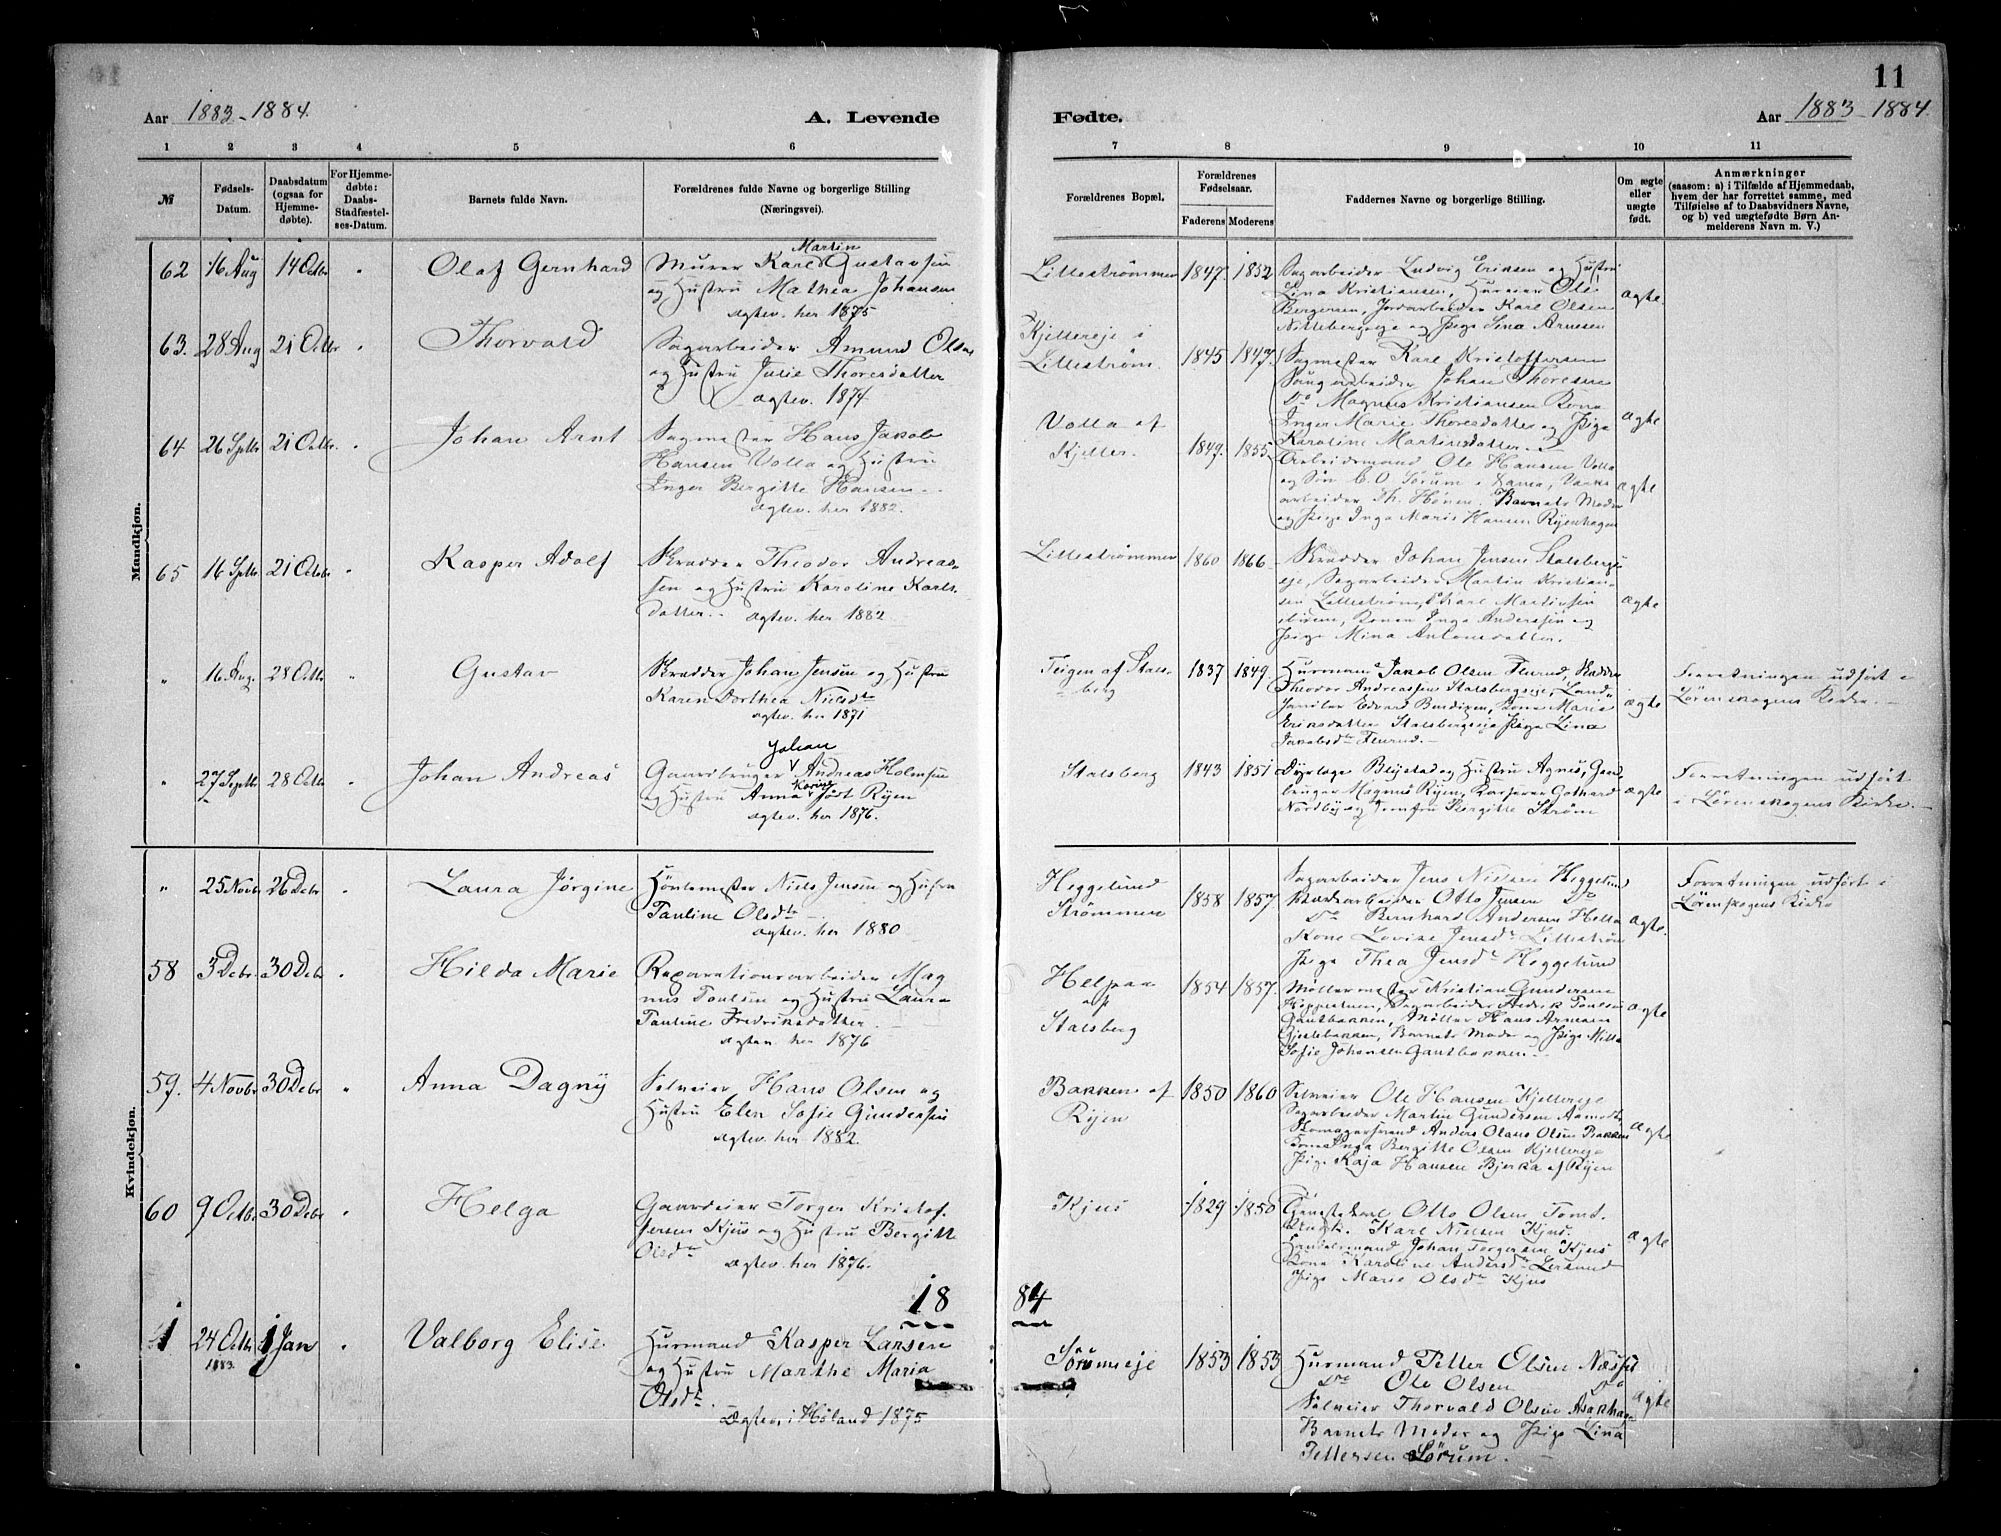 11
Aar 1883-1884.
A. Levende
Fødte.
Aar 1883-1884
1 2 3 4 5 6 7 8 9 10 11
№
Fødsels-
Datum.
Daabsdatum
(ogsaa for
Hjemme-
døbte).
For Hjemme-
døbte:
Daabs-
Stadfæstel-
ses-Datum.
Barnets fulde Navn.
Forældrenes fulde Navne og borgerlige Stilling
(Næringsvei).
Forældrenes Bopæl.
Forældrenes
Fødselsaar.
Faderens Moderens
Faddernes Navne og borgerlige Stilling.
Om ægte
eller
uægte
født.
Anmærkninger
(saasom: a) i Tilfælde af Hjemmedaab,
hvem der har forrettet samme, med
Tilføielse af to Daabsvidners Navne,
og b) ved uægtefødte Børn An-
melderens Navn m. V.)
Mandkjøn.
62 16 Aug 14 Octbr " Olaf Gernhard
Martin
Murer Karl Gustavsen
og Hustru Mathea Johansen
ægtev. her 1875
Lillestrømmen 1847. 1852
Sagarbeider Ludvig Eriksen og Hustru
Lina Kristiansen, Huseier Ole
Bergersen, Jordarbeider Karl Olsen
Nittebergseje og Pige Lina Arnesen
ægte.
63. 28 Aug 21 Octbr " Thorvald
Sagarbeider Amund Olsen
og Hustru Julie Thoresdatter
ægtev. 1874
Kjellereje i
Lillestrøm.
1845 1847.
Sagmester Karl Kristoffersen
Saugarbeider Johan Thoresen
Do Magnus Kristiansen Kona
Inger Marie Thoresdatter og Pige
Karoline Martinsdatter.
ægte
64 26 Septbr 21 Octbr. " Johan Arnt
Sagmester Hans Jakob
Hansen Volla og Hustru
Inger Bergitte Hansen.
ægtev. her 1882.
Volla af
Kjeller.
1849. 1855
Arbeidsmand Ole Hansen Volla
og Søn C. O. Sørum
arbeider Th. Barnets Moder
og Pige Inga Marie Hansen Ryenhagen
ægte
65 16 Septbr 21 Octbr " Kasper Adolf
Skrædder Theodor Andreas-
sen og Hustru Karoline Karls-
datter. ægtev. her 1882
Lillestrømmen 1860 1866
Skrædder Johan Jensen Stalsbergs-
eje, Sagarbeider Martin Kristian-
sen Lillestrøm, Do Karl Martinsen
ibidem, Konen Inga Andersen og
Pige Mina Antonsdatter.
ægte
" 16 Aug. 28 Octbr " Gustav
Skrædder Johan Jensen og Hustru
Karen Dorthea Nielsdtr
ægtev. her 1871
Teigen af Stals-
berg
1837 1849.
Husmand Jakob Olsen Flurud, Skrædder
Theodor Andreassen Stalsbergseje, Land-
handler Edvard Bendixen, Kone Marie
Eriksdatter Stalsbergseje Pige Lina
Jakobsdtr Flurud.
ægte
Forretningen udført i
Lørenskogens Kirke.
" 27 Septbr 28 Octbr " Johan Andreas
Johan
Gaardbruger Andreas Holmsen
Karine
og Hustru Anna født Ryen
ægtev. her 1876.
Stalsberg 1843 1851
Dyrlæge Blystad og Hustru Agnes, Gaard-
bruger Magnus Ryen, Kasserer Gothard
Nordby og Jomfru Bergitte Strøm
ægte
Forretningen udført
i Lørenskogens Kirke.
Kvindekjøn.
" 25 Novbr 26 Debr " Laura Jørgine
Høvlemester Niels Jensen og Hustru
Pauline Olsdtr
ægtev. her 1880
Heggelund
Strømmen
1858 1857
Sagarbeider Jens Nielsen Heggelund
Otto Jensen Do
Do Bernhard Andersen Holla
Kone Lovise Jensdtr Lillestrøm
Pige Thea Jensdtr Heggelund
ægte.
Forretningen udført i
Lørenskogens Kirke
58 3 Debr. 30 Debr " Hilda Marie
Reparationsarbeider Mag
nus Poulsen og Hustru Laura
Pauline Fredriksdatter.
ægtev. her 1876
Helpaa
af
Stalsberg
1854 1857.
Møllermester Kristian Gundersen
Sagarbeider Fredrik Poulsen
Gautbakken, Møller Hans Armann
Gjellebakken, Barnets Moder og Pige Milla
Sofie Johansen Gautbakken.
ægte
59. 4 Novbr 30 Debr " Anna Dagny
Selveier Hans Olsen og
Hustru Elen Sofie Gundersen
ægtev. her 1882.
Bakken af
Ryen
1850 1860
Selveier Ole Hansen Kjellereje
Sagarbeider Martin Gundersen Aamodt,
Skomagersvend Anders Olaus Olsen Bakken
Kone Inga Bergitte Olsen Kjellereje
Pige Kaja Hansen Bjerka af Ryen
ægte
60 9 Octbr 30 Debr " Helga
Gaardeier Torger Kristof-
fersen Kjus og Hustru Bergitte
Olsdtr
ægtev. her 1876.
Kjus 1829 1850
Otto Olsen Tomt.
Ungk. Karl Nielsen Kjus.
Handelsmand Johan Torgersen Kjus
Kona Karoline Andersdtr Lersund
Pige Marie Olsdtr Kjus
ægte
18 84
1 24 Octbr 1 Jan " Valborg Elise
1883.
Husmand Kasper Larsen
og Hustru Marthe Maria
Olsdtr.
Ægtev. i Høland 1875
Sørumeje 1853 1853
Husmand Petter Olsen Næsset
Do Ole Olsen Do
Selveier Thorvald Olsen Aakhagen
Barnets Moder og Pige Lina
Pettersen Sørum.
ægte